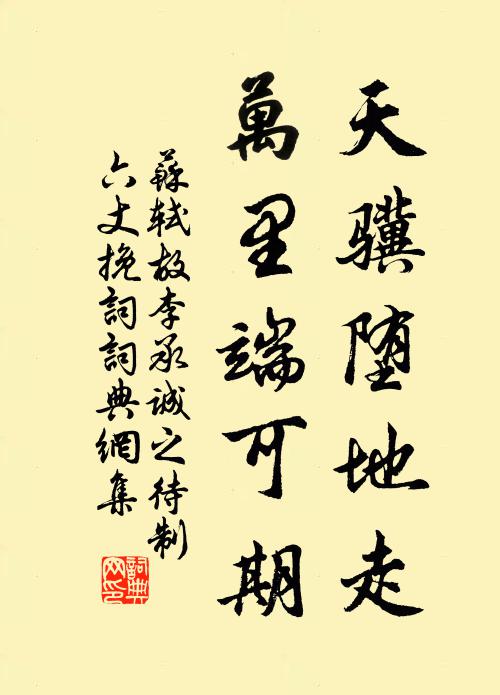 天骥堕地走
萬里端可期
蘇轼故李承诚之待制
六丈挽詞詞典網集
詞典网印